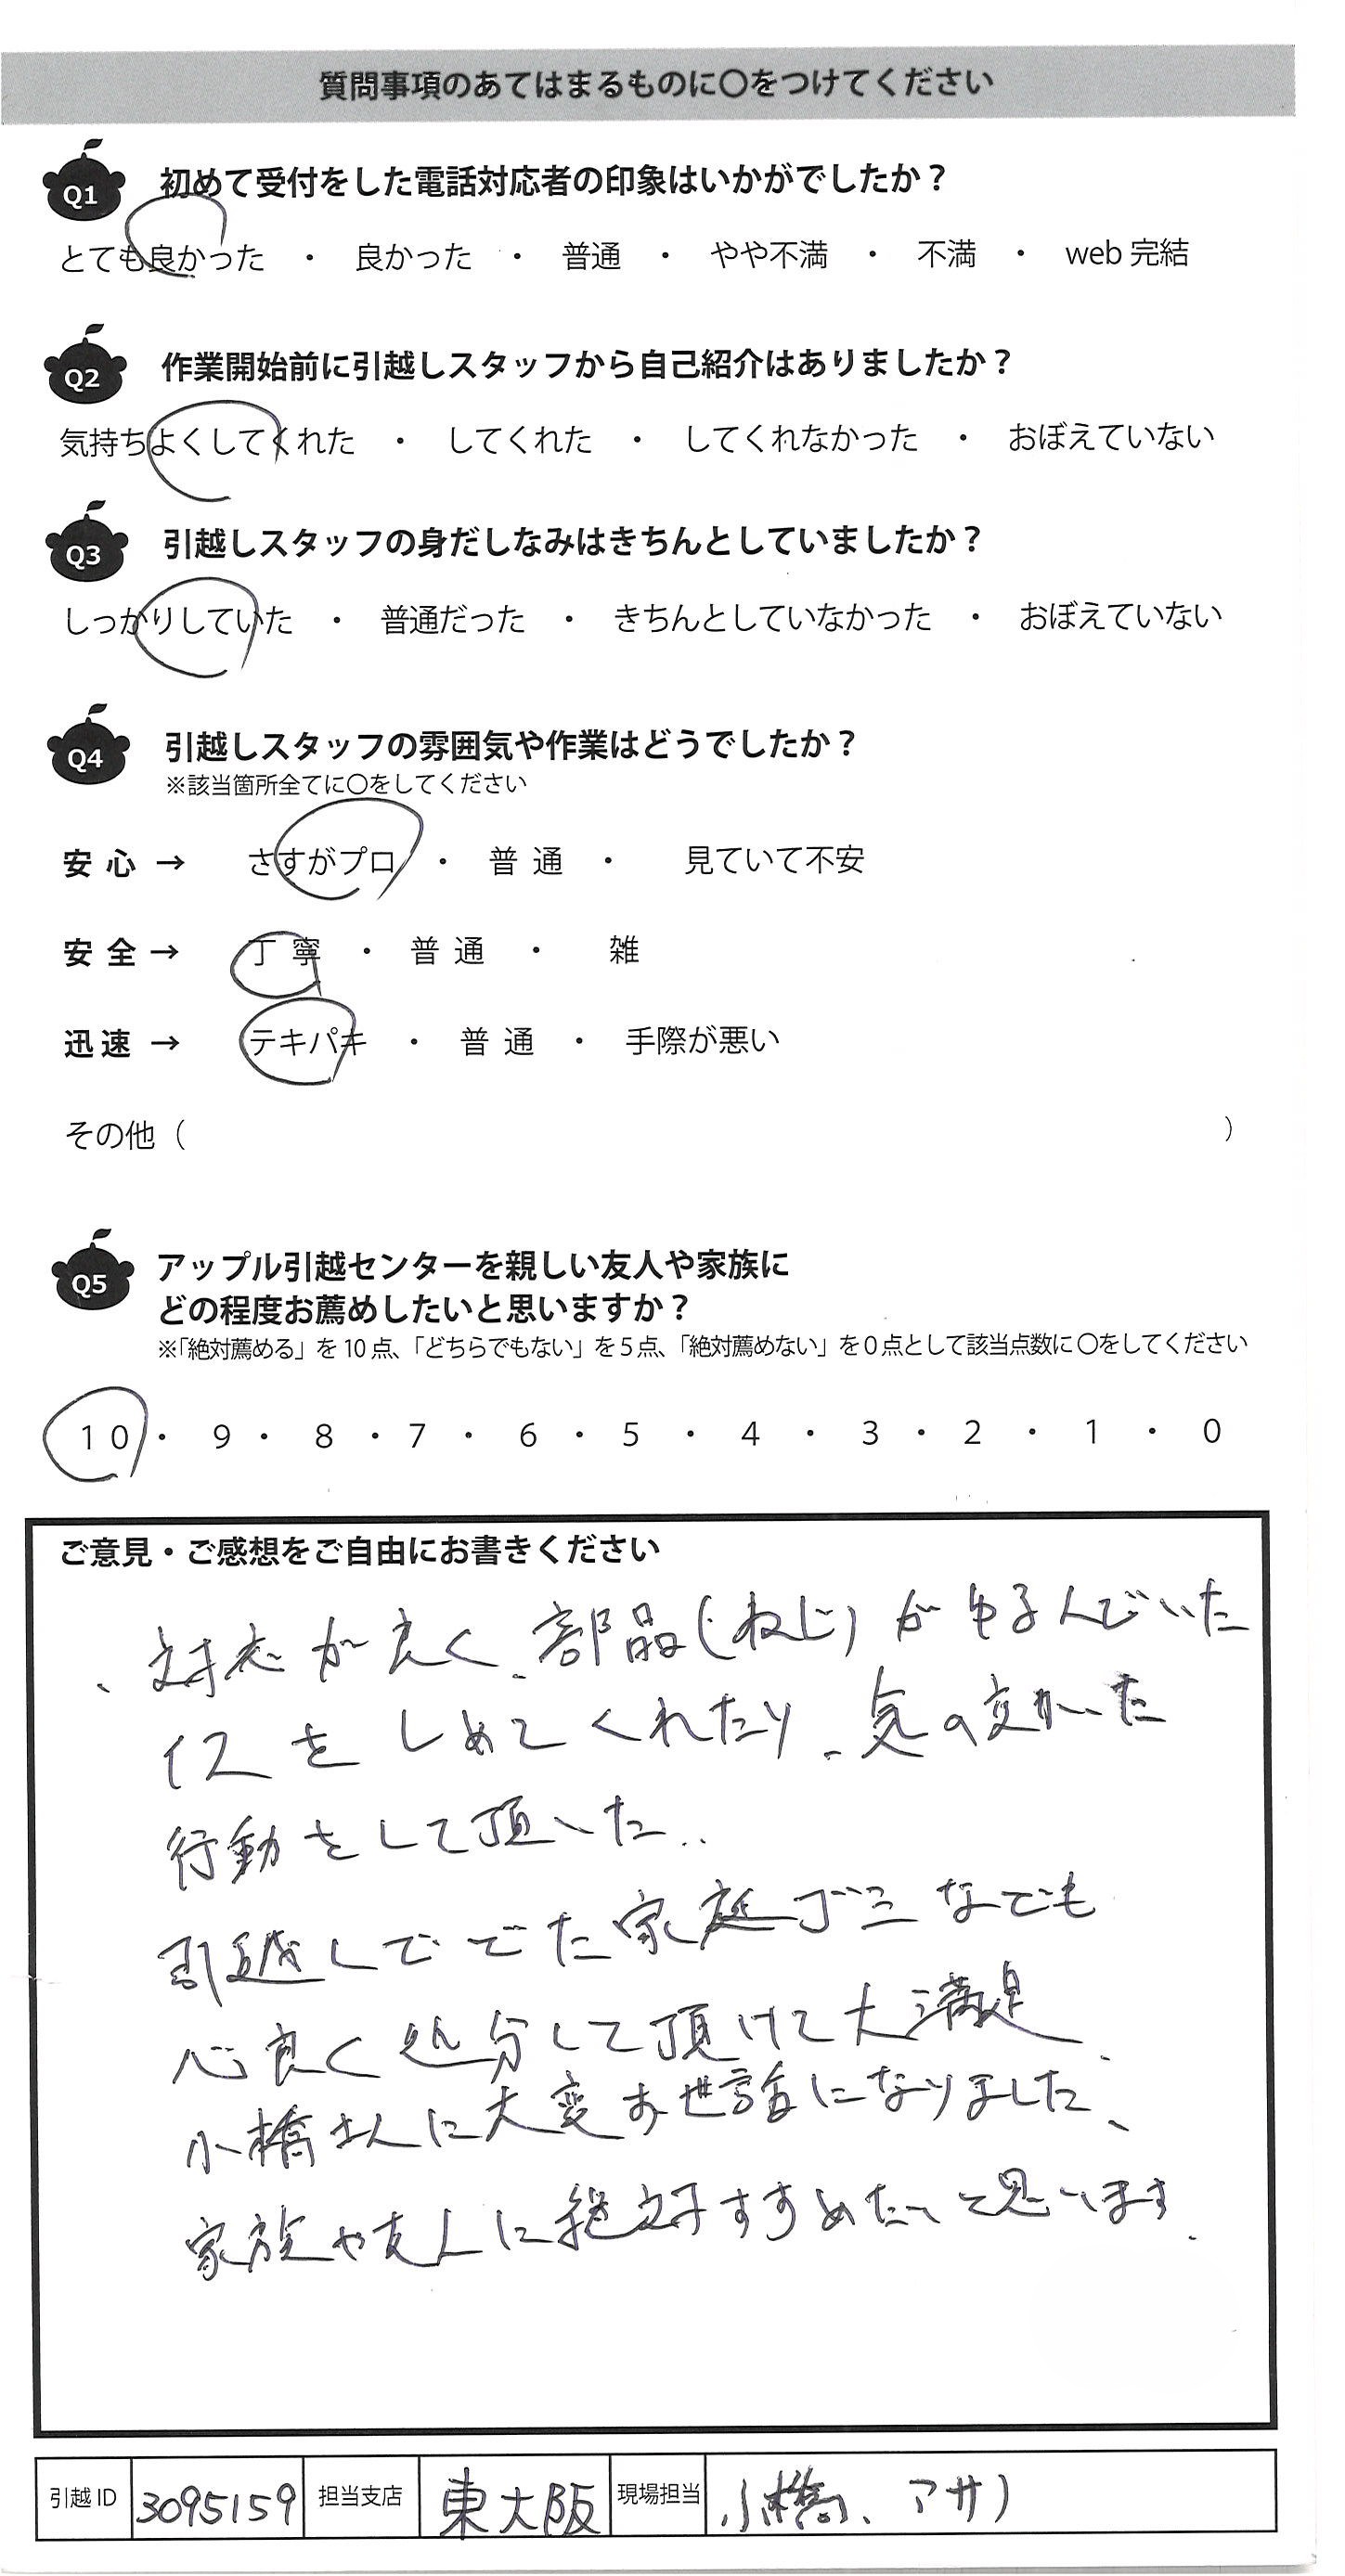 質問事項のあてはまるものに〇をつけてください
Q1 初めて受付をした電話対応者の印象はいかがでしたか？
とても良かった ・ 良かった ・ 普通 ・ やや不満 ・ 不満 ・ web 完結
Q2 作業開始前に引越しスタッフから自己紹介はありましたか？
気持ちよくしてくれた ・ してくれた ・ してくれなかった ・ おぼえていない
Q3 引越しスタッフの身だしなみはきちんとしていましたか？
しっかりしていた ・ 普通だった ・ きちんとしていなかった ・ おぼえていない
Q4 引越しスタッフの雰囲気や作業はどうでしたか？
※該当箇所全てに〇をしてください
安心 → さすがプロ ・ 普通 ・ 見ていて不安
安全 → 丁寧 ・ 普通 ・ 雑
迅速 → テキパキ ・ 普通 ・ 手際が悪い
その他（ ）
Q5 アップル引越センターを親しい友人や家族に
どの程度お薦めしたいと思いますか？
※「絶対薦める」を10点、「どちらでもない」を5点、「絶対薦めない」を0点として該当点数に〇をしてください
10 ・ 9 ・ 8 ・ 7 ・ 6 ・ 5 ・ 4 ・ 3 ・ 2 ・ 1 ・ 0
ご意見・ご感想をご自由にお書きください
、対応が良く、部品（ねじ）がゆるんでいた
イスをしめてくれたり、気の効いた
行動をして頂いた..
引越しででた家庭ゴミなども
心良く処分して頂けて大満足、
小橋さんに大変お世話になりました、
家族や友人に絶対すすめたいと思います.
引越ID 3095159 担当支店 東大阪 現場担当 小橋、アサノ